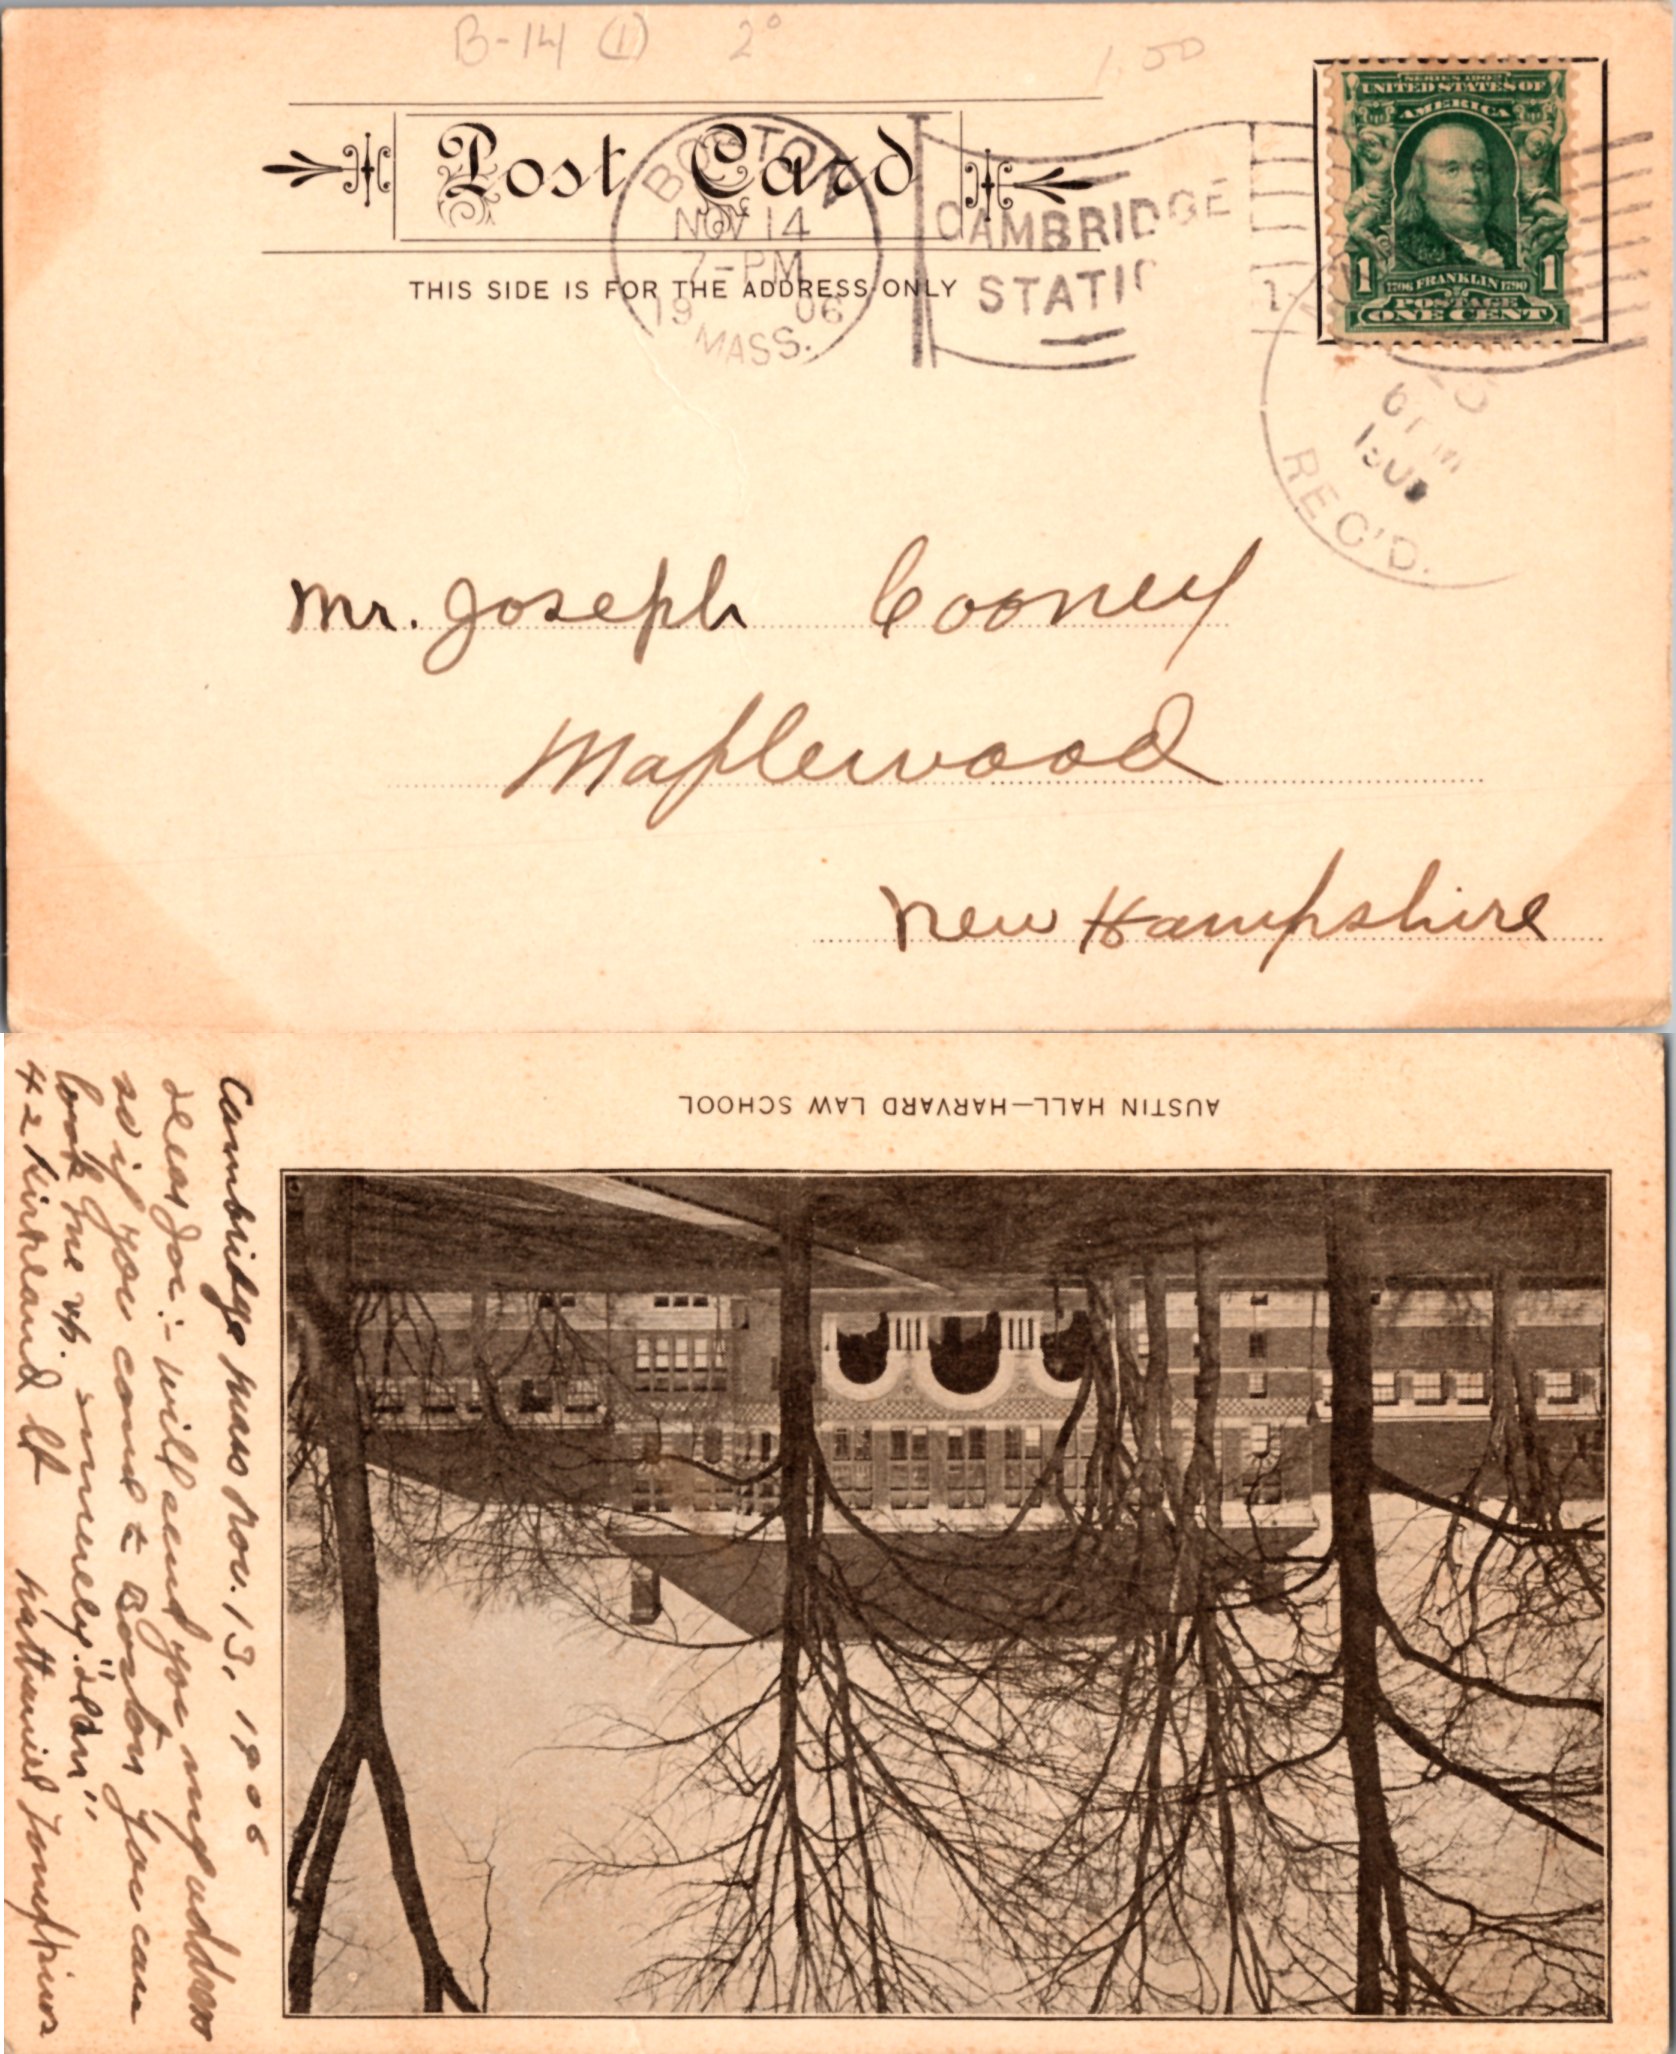 B-14 (1) 2°
1.50
Post Card
THIS SIDE IS FOR THE ADDRESS ONLY
BOSTON
NOV 14
7-PM
19 06
MASS.
CAMBRIDGE
STATI
SERIES 1902
UNITED STATES OF
AMERICA
1706 FRANKLIN 1790
1 1
POSTAGE
ONE CENT
6 PM
REC'D.
Mr. Joseph Cooney
Maplewood
New Hampshire
AUSTIN HALL—HARVARD LAW SCHOOL
Cambridge Mass Nov. 13, 1906
Dear Joe:- Will send you my address
so if you come to Boston you can
look me up. Sincerely "Dean"
42 Kirkland St